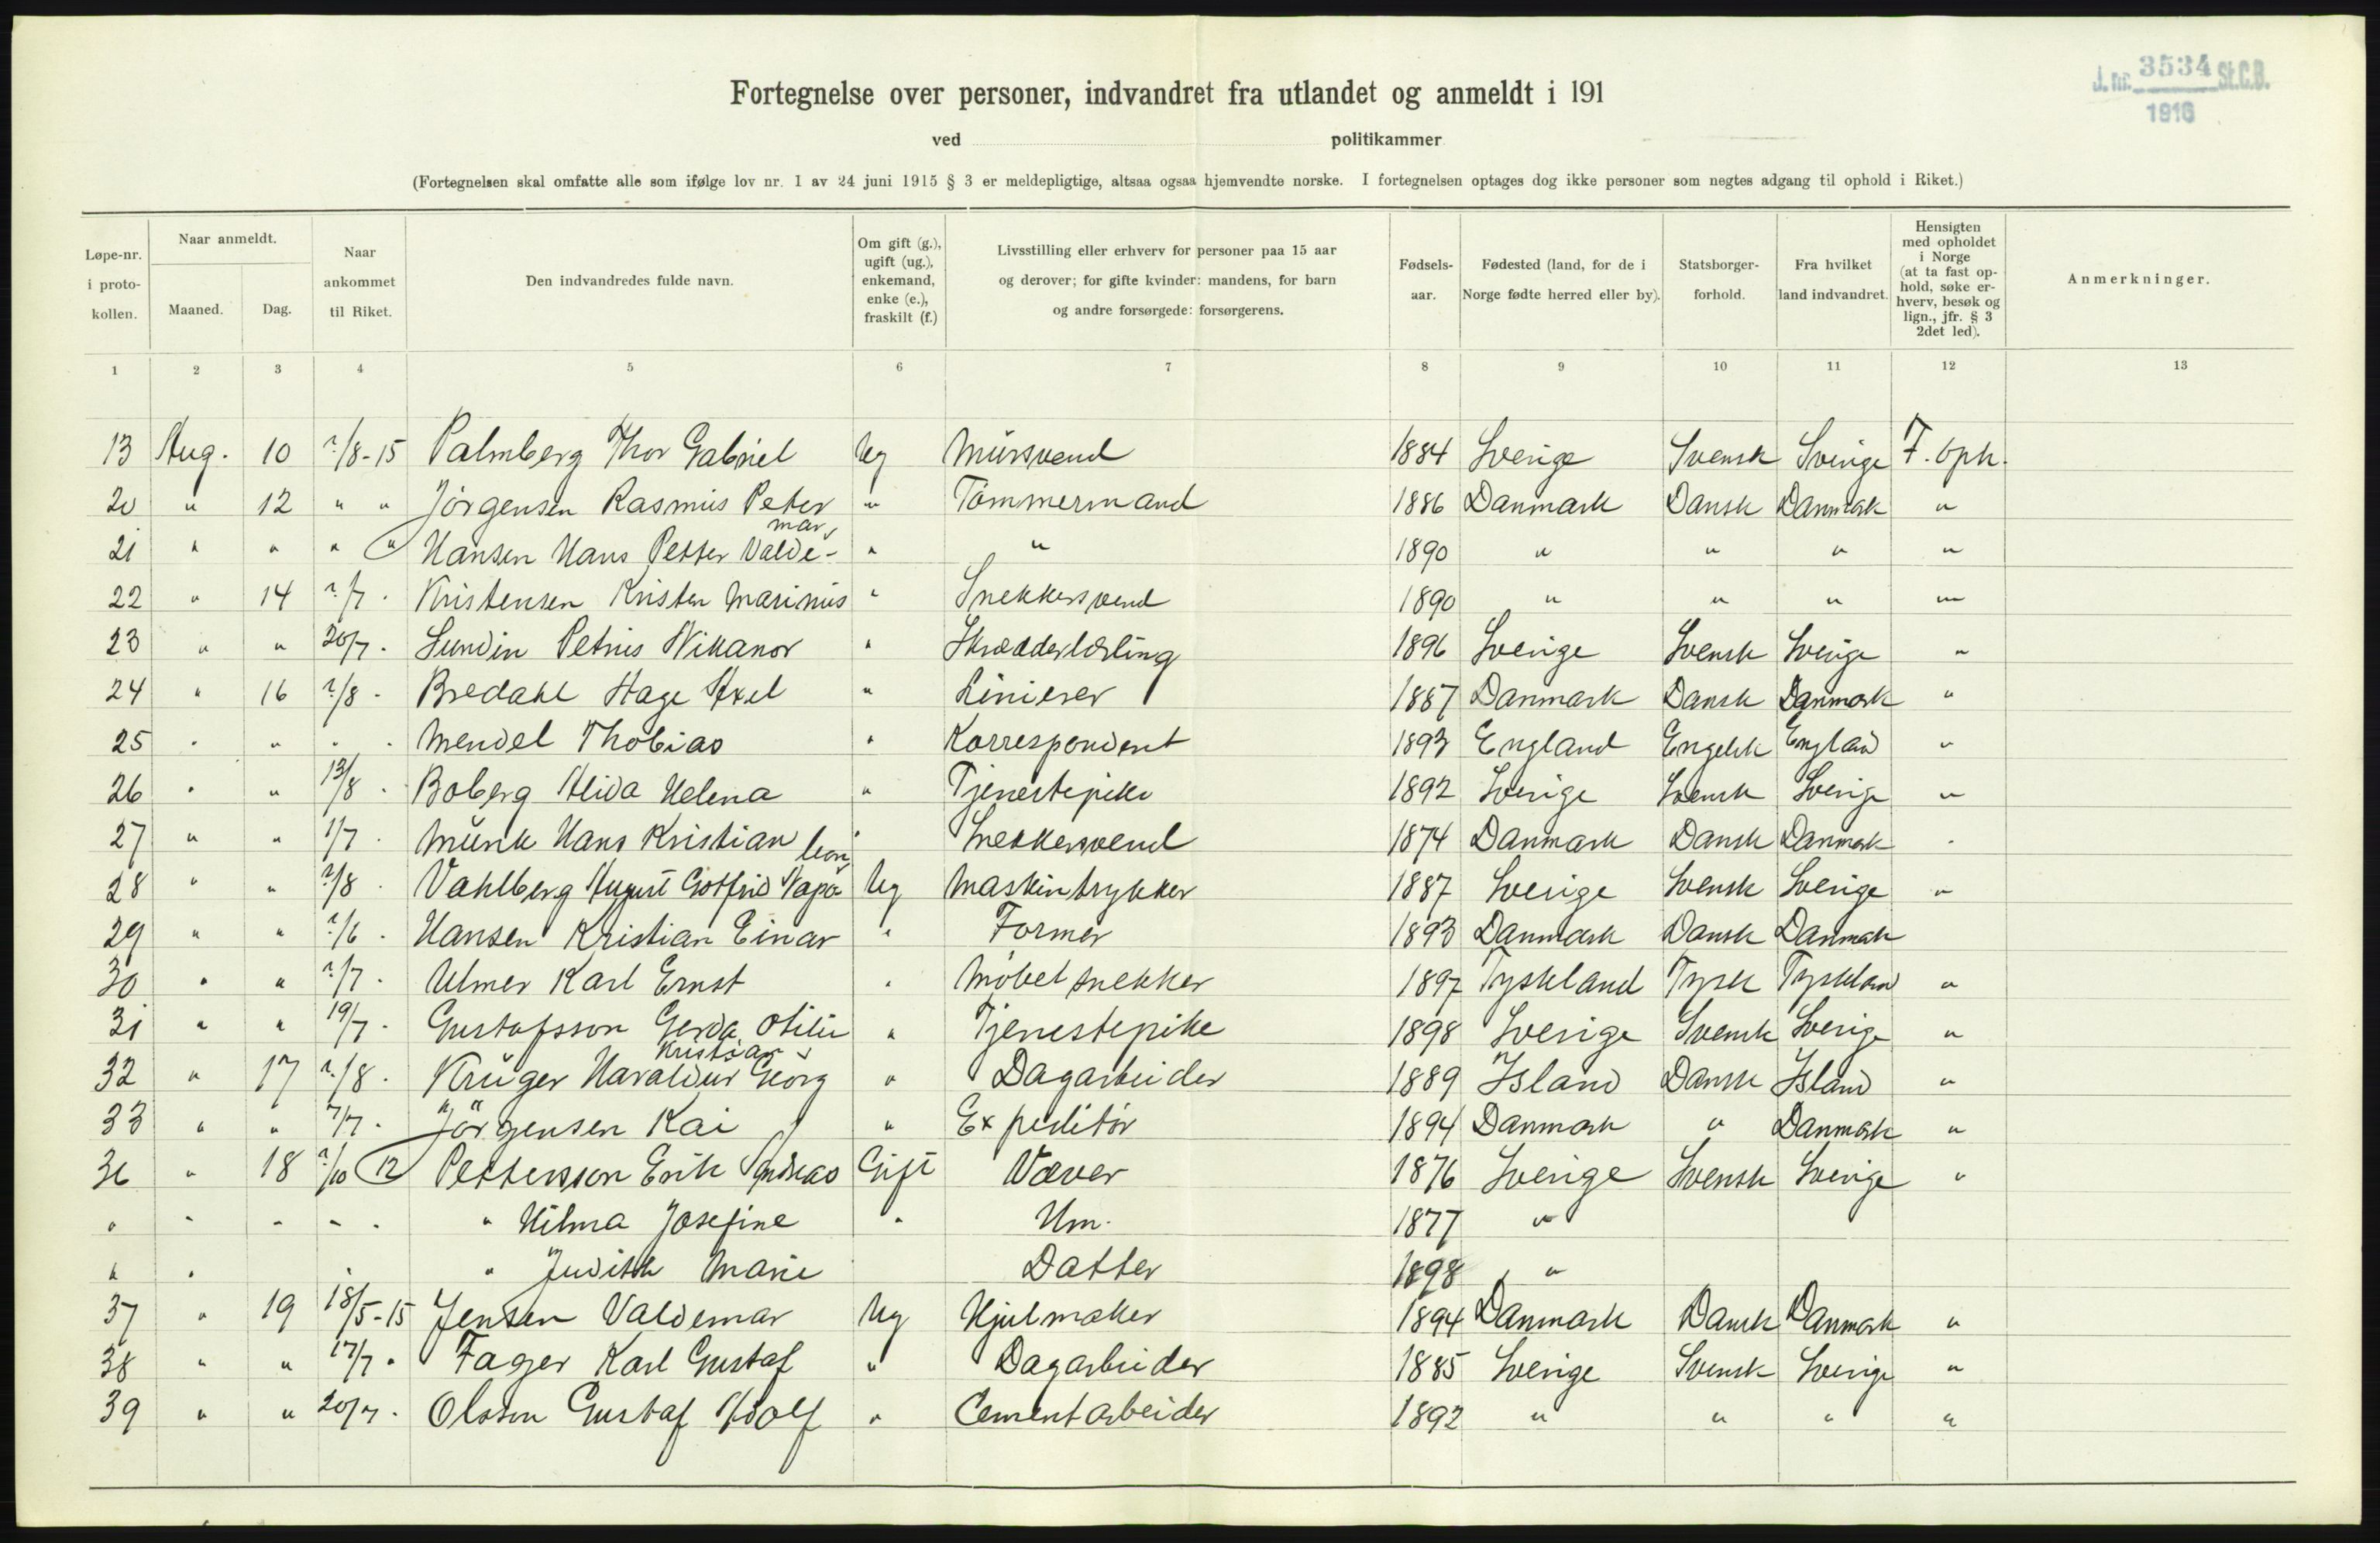 J. nr. 3534 St.C.B.
1916
Fortegnelse over personer, indvandret fra utlandet og anmeldt i 191
ved politikammer
(Fortegnelsen skal omfatte alle som ifølge lov nr. 1 av 24 juni 1915 § 3 er meldepligtige, altsaa ogsaa hjemvendte norske. I fortegnelsen optages dog ikke personer som negtes adgang til ophold i Riket.)
Løpe-nr. i proto-kollen. Naar anmeldt. Maaned. Dag. Naar ankommet til Riket. Den indvandredes fulde navn. Om gift (g.), ugift (ug.), enkemand, enke (e.), fraskilt (f.) Livsstilling eller erhverv for personer paa 15 aar og derover; for gifte kvinder: mandens, for barn og andre forsørgede: forsørgerens. Fødsels-aar. Fødested (land, for de i Norge fødte herred eller by). Statsborger-forhold. Fra hvilket land indvandret. Hensigten med opholdet i Norge (at ta fast op-hold, søke er-hverv, besøk og lign., jfr. § 3 2det led). Anmerkninger.
1 2 3 4 5 6 7 8 9 10 11 12 13
13 Aug. 10 ?/8-15 Palmberg Thor Gabriel Ug Mursvend 1884 Sverige Svensk Sverige F. oph.
20 " 12 " " Jörgensen Rasmus Peter " Tömmermand 1886 Danmark Dansk Danmark "
21 " " " " Hansen Hans Petter Valdemar " " 1890 " " " "
22 " 14 ?/7 . Kristensen Kristen Marinus " Snekkersvend 1890 " " " "
23 " " 20/7 . Lundin Petrus Nikanor " Skrædderlærling 1896 Sverige Svensk Sverige "
24 " 16 ?/8 - Bredahl Hage Axel " Linierer 1887 Danmark Dansk Danmark "
25 " " " . Mendel Thobias " Korrespondent 1893 England Engelsk England "
26 " " 13/8 . Boberg Alida Helena " Tjenestepike 1892 Sverige Svensk Sverige "
27 " " 1/7 . Munk Hans Kristian " Snekkersvend 1874 Danmark Dansk Danmark "
28 " " ?/8 . Vahlberg August Gotfrid Napoleon Ug Maskintrykker 1887 Sverige Svensk Sverige "
29 " " ?/6 . Hansen Kristian Einar " Former 1893 Danmark Dansk Danmark
30 " " ?/7 . Ulmer Karl Ernst " Möbelsnekker 1897 Tyskland Tysk Tyskland "
31 " " 19/7 . Gustafsson Gerda Otilie " Tjenestepike 1898 Sverige Svensk Sverige "
32 " 17 ?/8 . Krüger Haraldur Georg Kristian " Dagarbeider 1889 Island Dansk Island "
33 " " 7/7 . Jörgensen Kai " Expeditör 1894 Danmark " Danmark "
36 " 18 ?/10 12 Pettersson Erik Andreas Gift Væver 1876 Sverige Svensk Sverige "
" " " " " " Hilma Josefine " Hm. 1877 "
" " " " Judith Marie Datter 1898 "
37 " 19 18/5-15 Jensen Valdemar Ug Hjulmaker 1894 Danmark Dansk Danmark "
38 " " 17/7 . Fager Karl Gustaf " Dagarbeider 1885 Sverige Svensk Sverige "
39 " " 20/7 . Olsson Gustaf Adolf " Cementarbeider 1892 " " " "